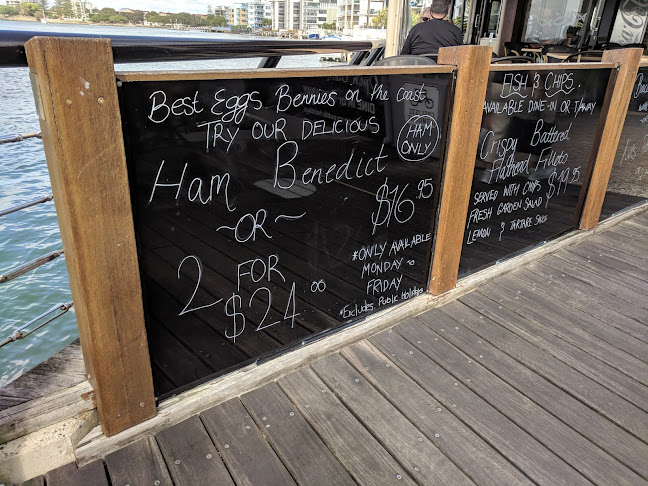 Best Eggs Bennies on the coast
TRY OUR DELICIOUS
HAM
ONLY
Ham Benedict
$16.95
~OR~
2 FOR
$24.00
*ONLY AVAILABLE
MONDAY ~
FRIDAY
*Excludes Public Holidays
FISH & CHIPS
AVAILABLE DINE-IN OR T/AWAY
Crispy Battered
Flathead Fillets
SERVED WITH CHIPS
$19.95
FRESH GARDEN SALAD
LEMON & TARTARE SAUCE